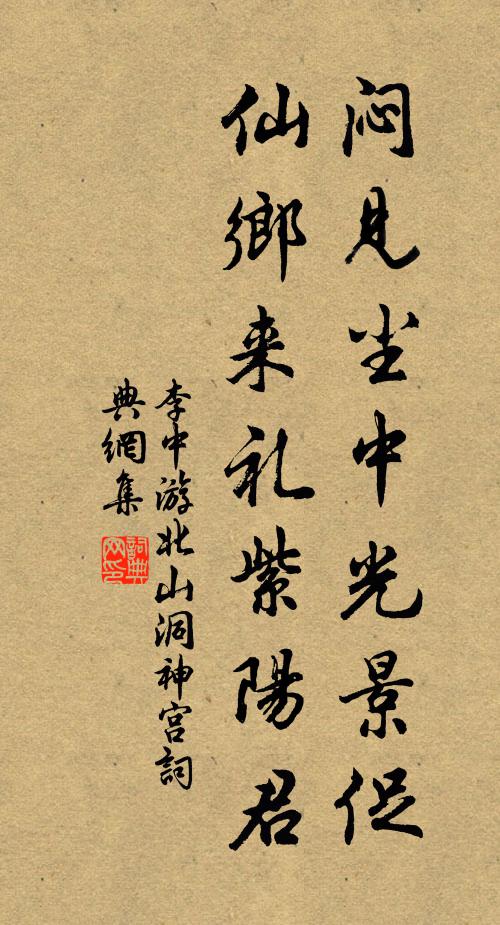 闷见尘中光景促
仙鄉来礼紫陽君
李中游北山洞神宫詞
典網集
詞典
网印